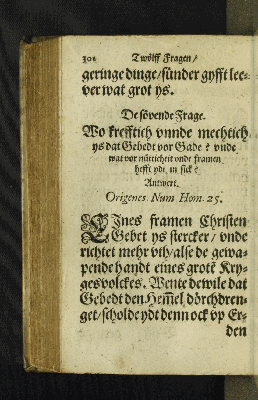 301 Twölff Fragen/
geringe dinge/ sünder gyfft lee-
ver wat grot ys.
De sövende Frage.
Wo krefftich vnnde mechtich
ys dat Gebedt vor Gade? vnde
wat vor nütticheit vnde framen
hefft ydt in sick?
Antwert.
Origenes. Num Hom. 25.
EInes framen Christen
Gebet ys stercker/ vnde
richtet mehr vth/ alse de gewa-
pende handt eines grotē Kry-
ges volckes. Wente dewile dat
Gebedt den Hem̄el dörchdren-
get/ scholde ydt denn ock vp Er-
den